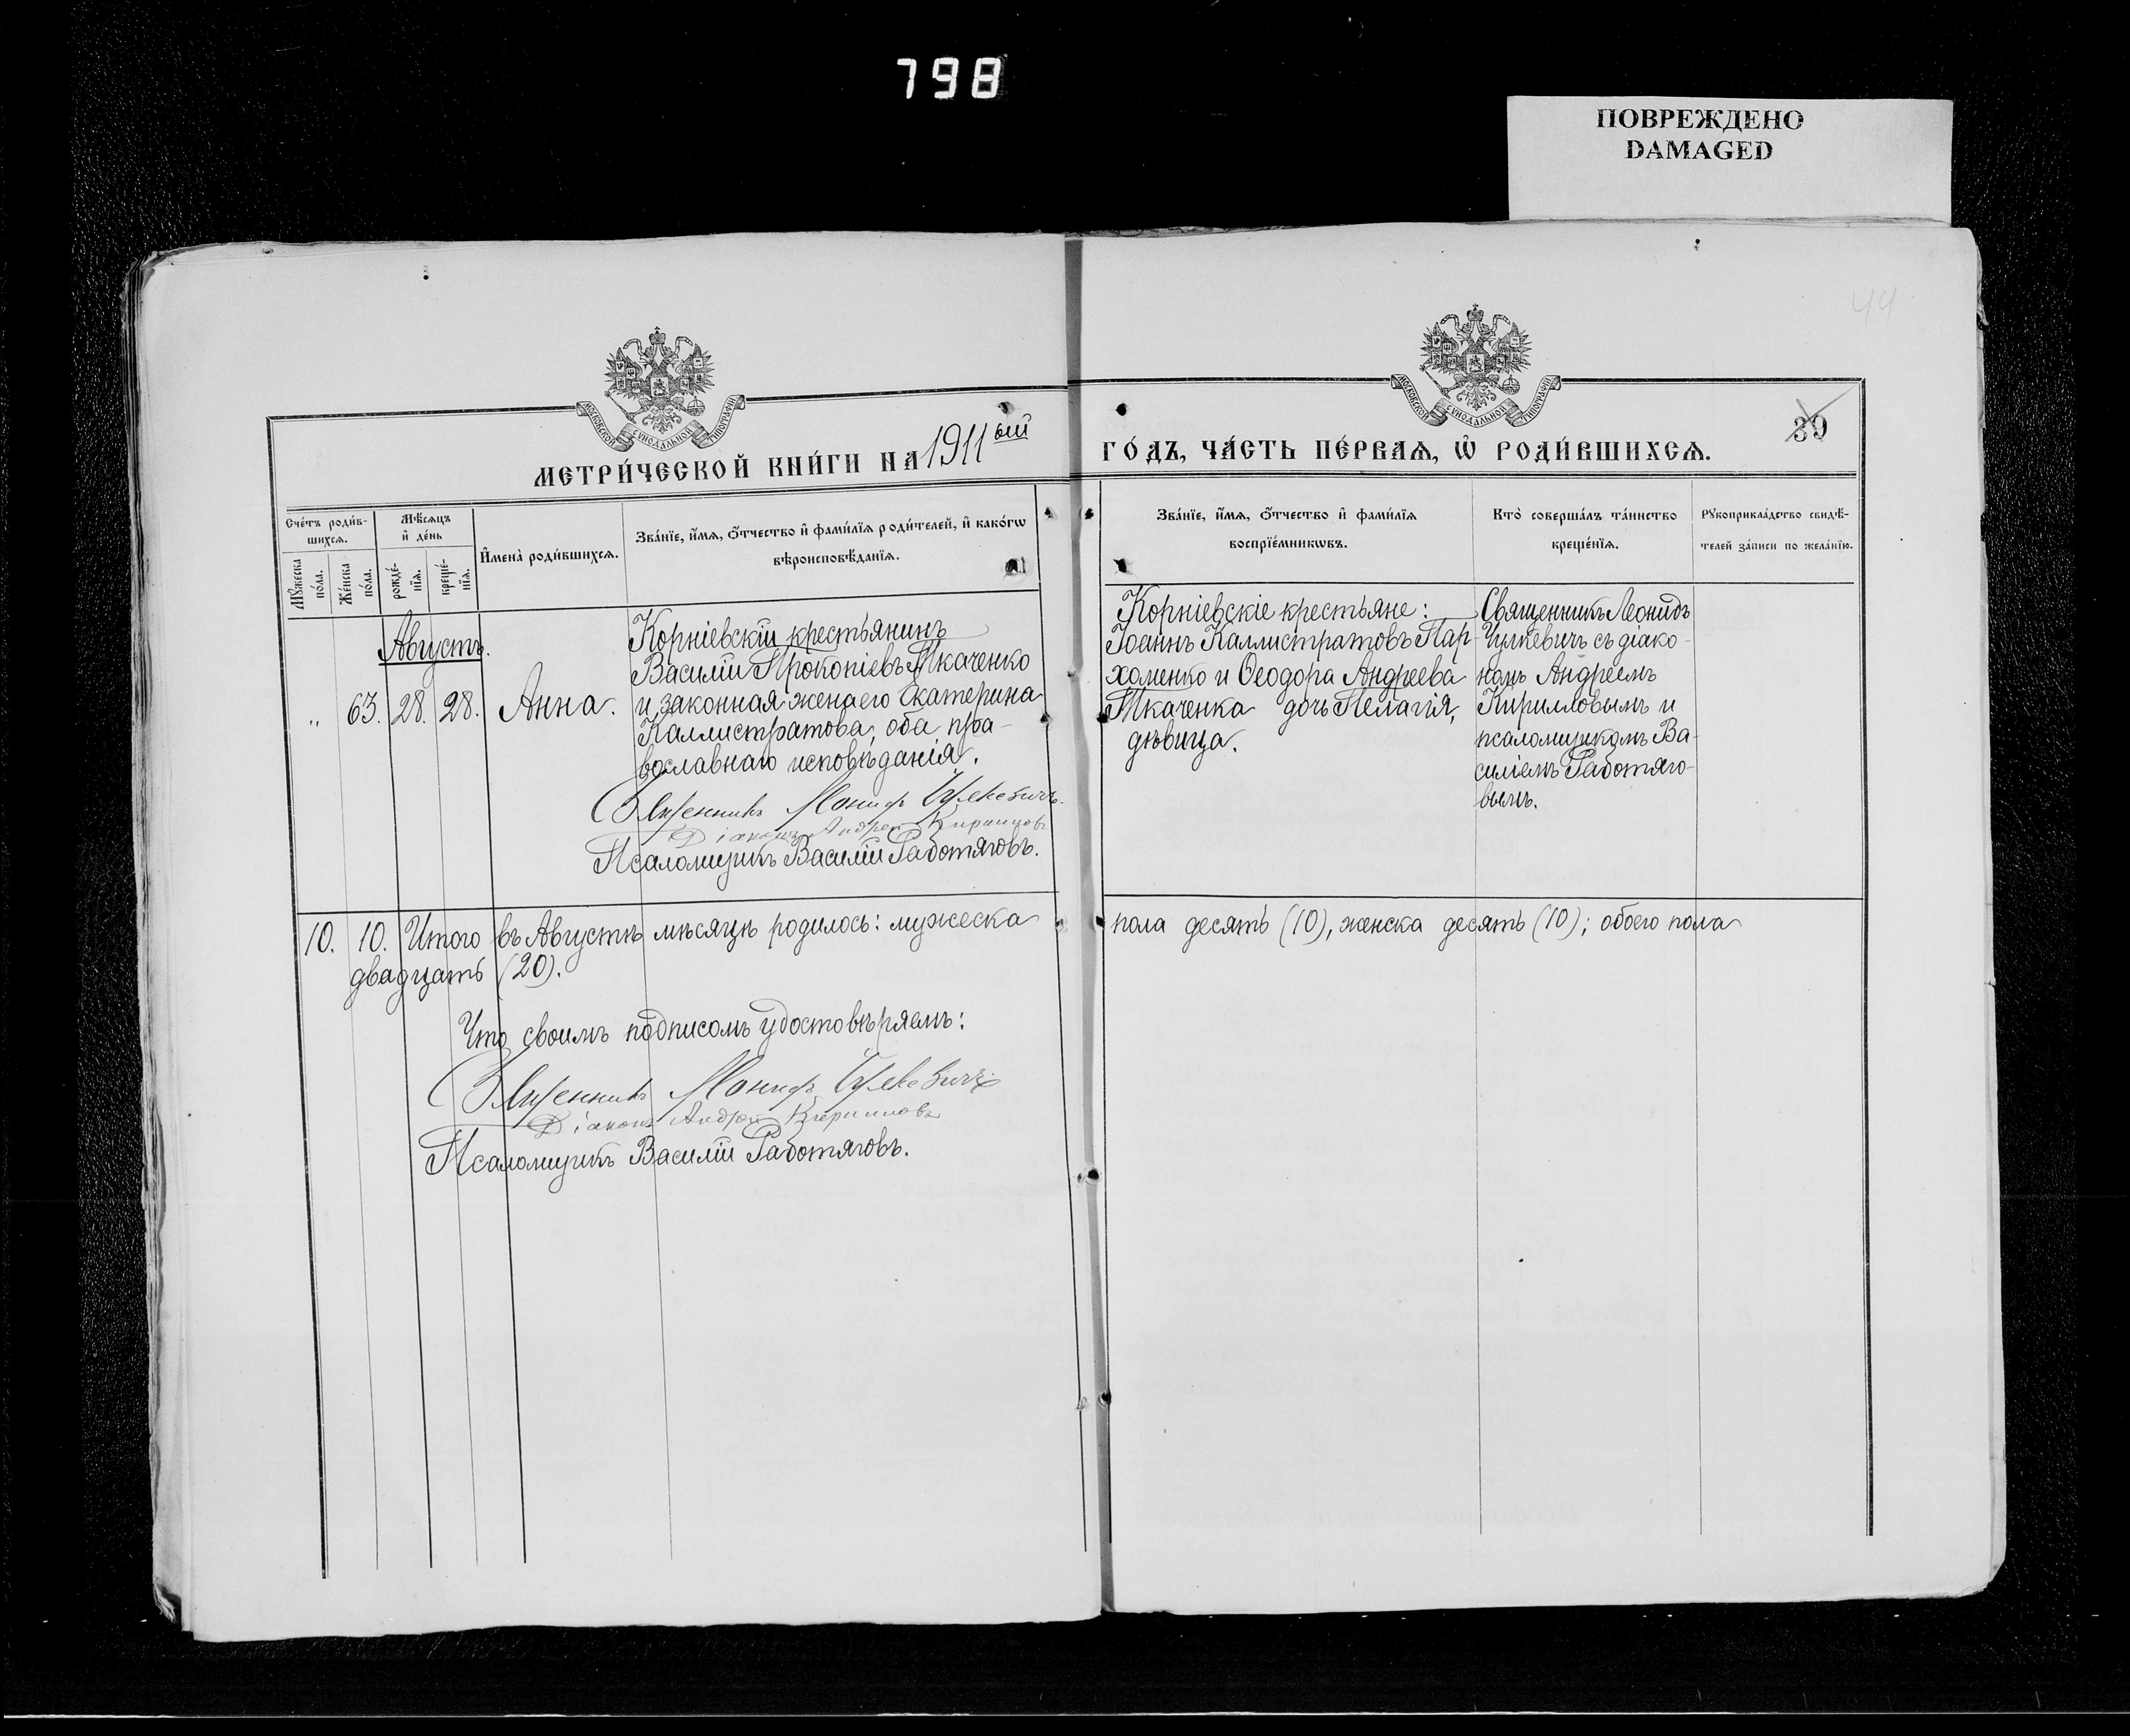 798
ПОВРЕЖДЕНО
DAMAGED
44
МОСКОВСКОЙ СѴНОДАЛЬНОЙ ТИПОГРАФІИ
МОСКОВСКОЙ СѴНОДАЛЬНОЙ ТИПОГРАФІИ
39
МЕТРИ́ЧЕСКОЙ КНИ́ГИ НА 1911ый ГО́ДЪ, ЧА́СТЬ ПЕ́РВАѦ, Ѡ҆ РОДИ́ВШИХСѦ.
Сче́тъ роди́в-
шихсѧ.
Мꙋжеска по́ла.
Же́нска по́ла.
Мѣ́сѧцъ
и҆ де́нь
рожде́-
нїѧ.
креще́-
нїѧ.
И҆мена̀ роди́вшихсѧ.
Зва́нїе, и҆́мѧ, ѻ҆́тчество и҆ фами́лїѧ роди́телей, и҆ како́гѡ
вѣроисповѣ́данїѧ.
Зва́нїе, и҆́мѧ, ѻ҆́тчество и҆ фами́лїѧ
воспрїе́мникѡвъ.
Кто̀ соверша́лъ та́инство
креще́нїѧ.
Рꙋкоприкла́дство свидѣ́-
телей за́писи по жела́нїю.
Августъ.
„ 63. 28. 28. Анна.
Корніевскій крестьянинъ
Василій Прокопіевъ Ткаченко
и законная жена его Екатерина
Каллистратова, оба пра-
вославнаго исповѣданія.
Священникъ Леонидъ Чулкевичъ.
Діаконъ Андрей Кирилловъ
Псаломщикъ Василій Работяговъ.
Корніевскіе крестьяне:
Іоаннъ Каллистратовъ Пар-
хоменко и Ѳеодора Андреева
Ткаченка дочь Пелагія,
дѣвица.
Священникъ Леонидъ
Чулкевичъ съ діако-
номъ Андреемъ
Кирилловымъ и
псаломщикомъ Ва-
силіемъ Работяго-
вымъ.
10. 10. Итого въ Августѣ мѣсяцѣ родилось: мужеска пола десять (10), женска десять (10); обоего пола
двадцать (20).
Что своимъ подписомъ удостовѣряемъ:
Священникъ Леонидъ Чулкевичъ
Діаконъ Андрей Кирилловъ
Псаломщикъ Василій Работяговъ.